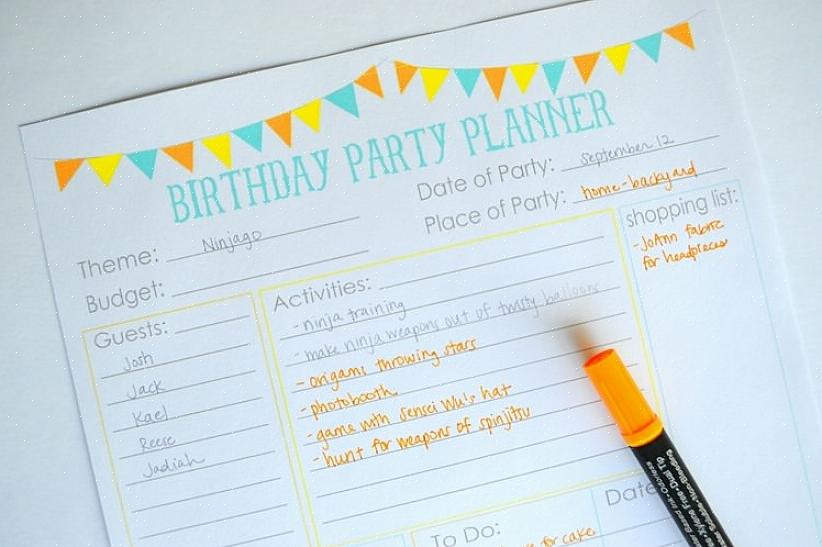 BIRTHDAY PARTY PLANNER
Date of Party: september 12
Place of Party: home-backyard
Theme: Ninjago
Budget:
shopping list:
- JoAnn fabric
for headpieces
Activities:
- ninja training
- make ninja weapons out of twisty balloons
- origami throwing stars
- photobooth
- game with sensei Wu's hat
- hunt for weapons of spinjitsu
Guests:
Josh
Jack
Kael
Reese
Jadiah
To Do:
for cake
Date
Dual Tip
Non-Bleeding